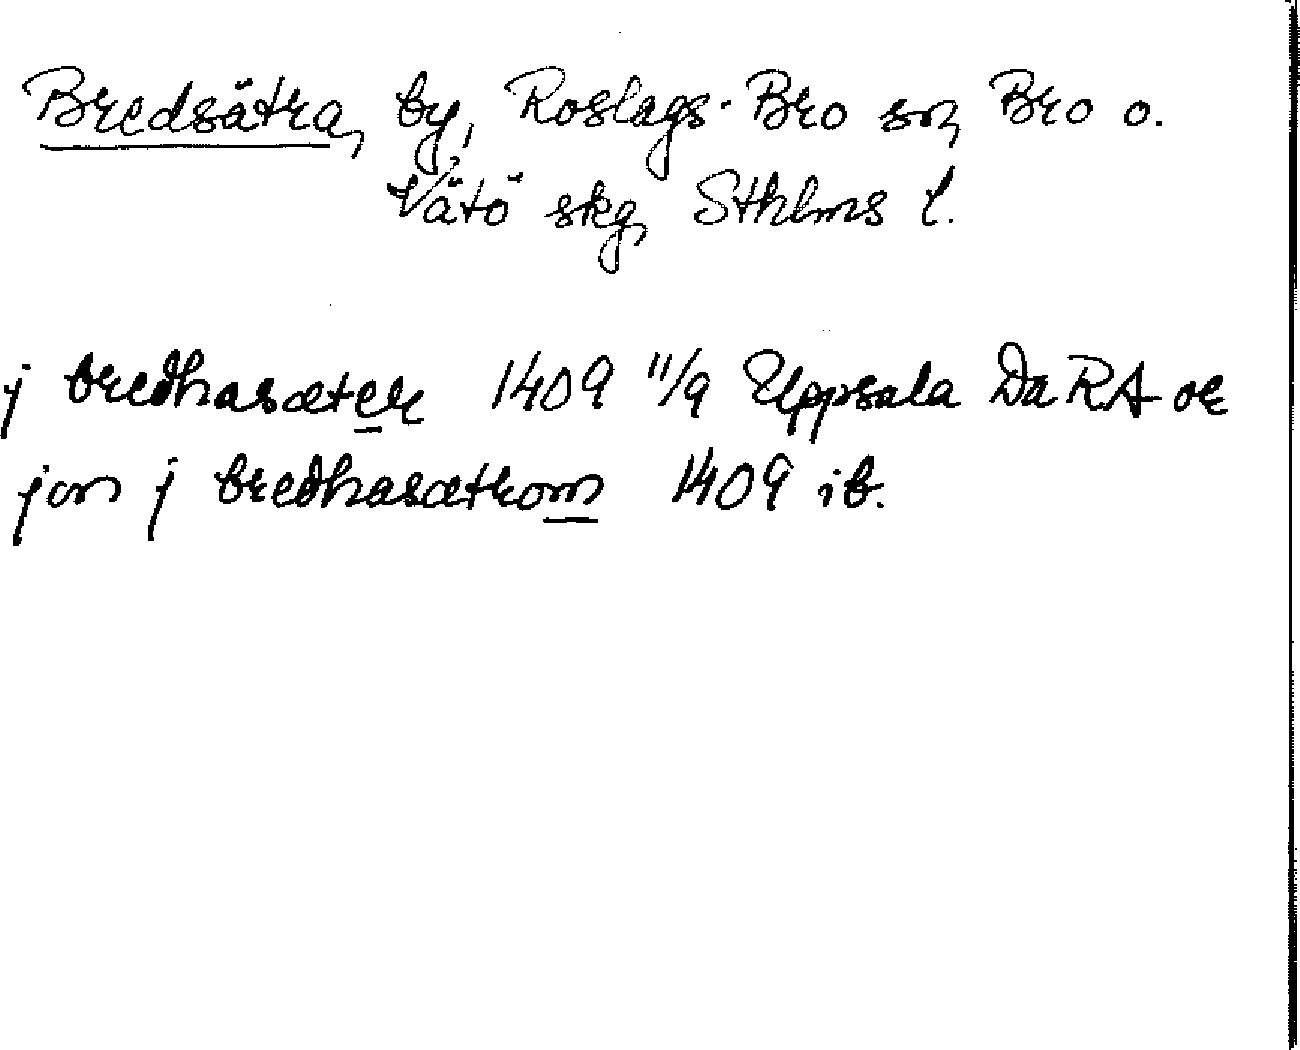 Bredsätra, by, Roslags-Bro sn, Bro o.
Vätö skg, Sthlms l.
j bredhasæter 1409 11/9 Uppsala Da RA or
jon j bredhasætrom 1409 ib.